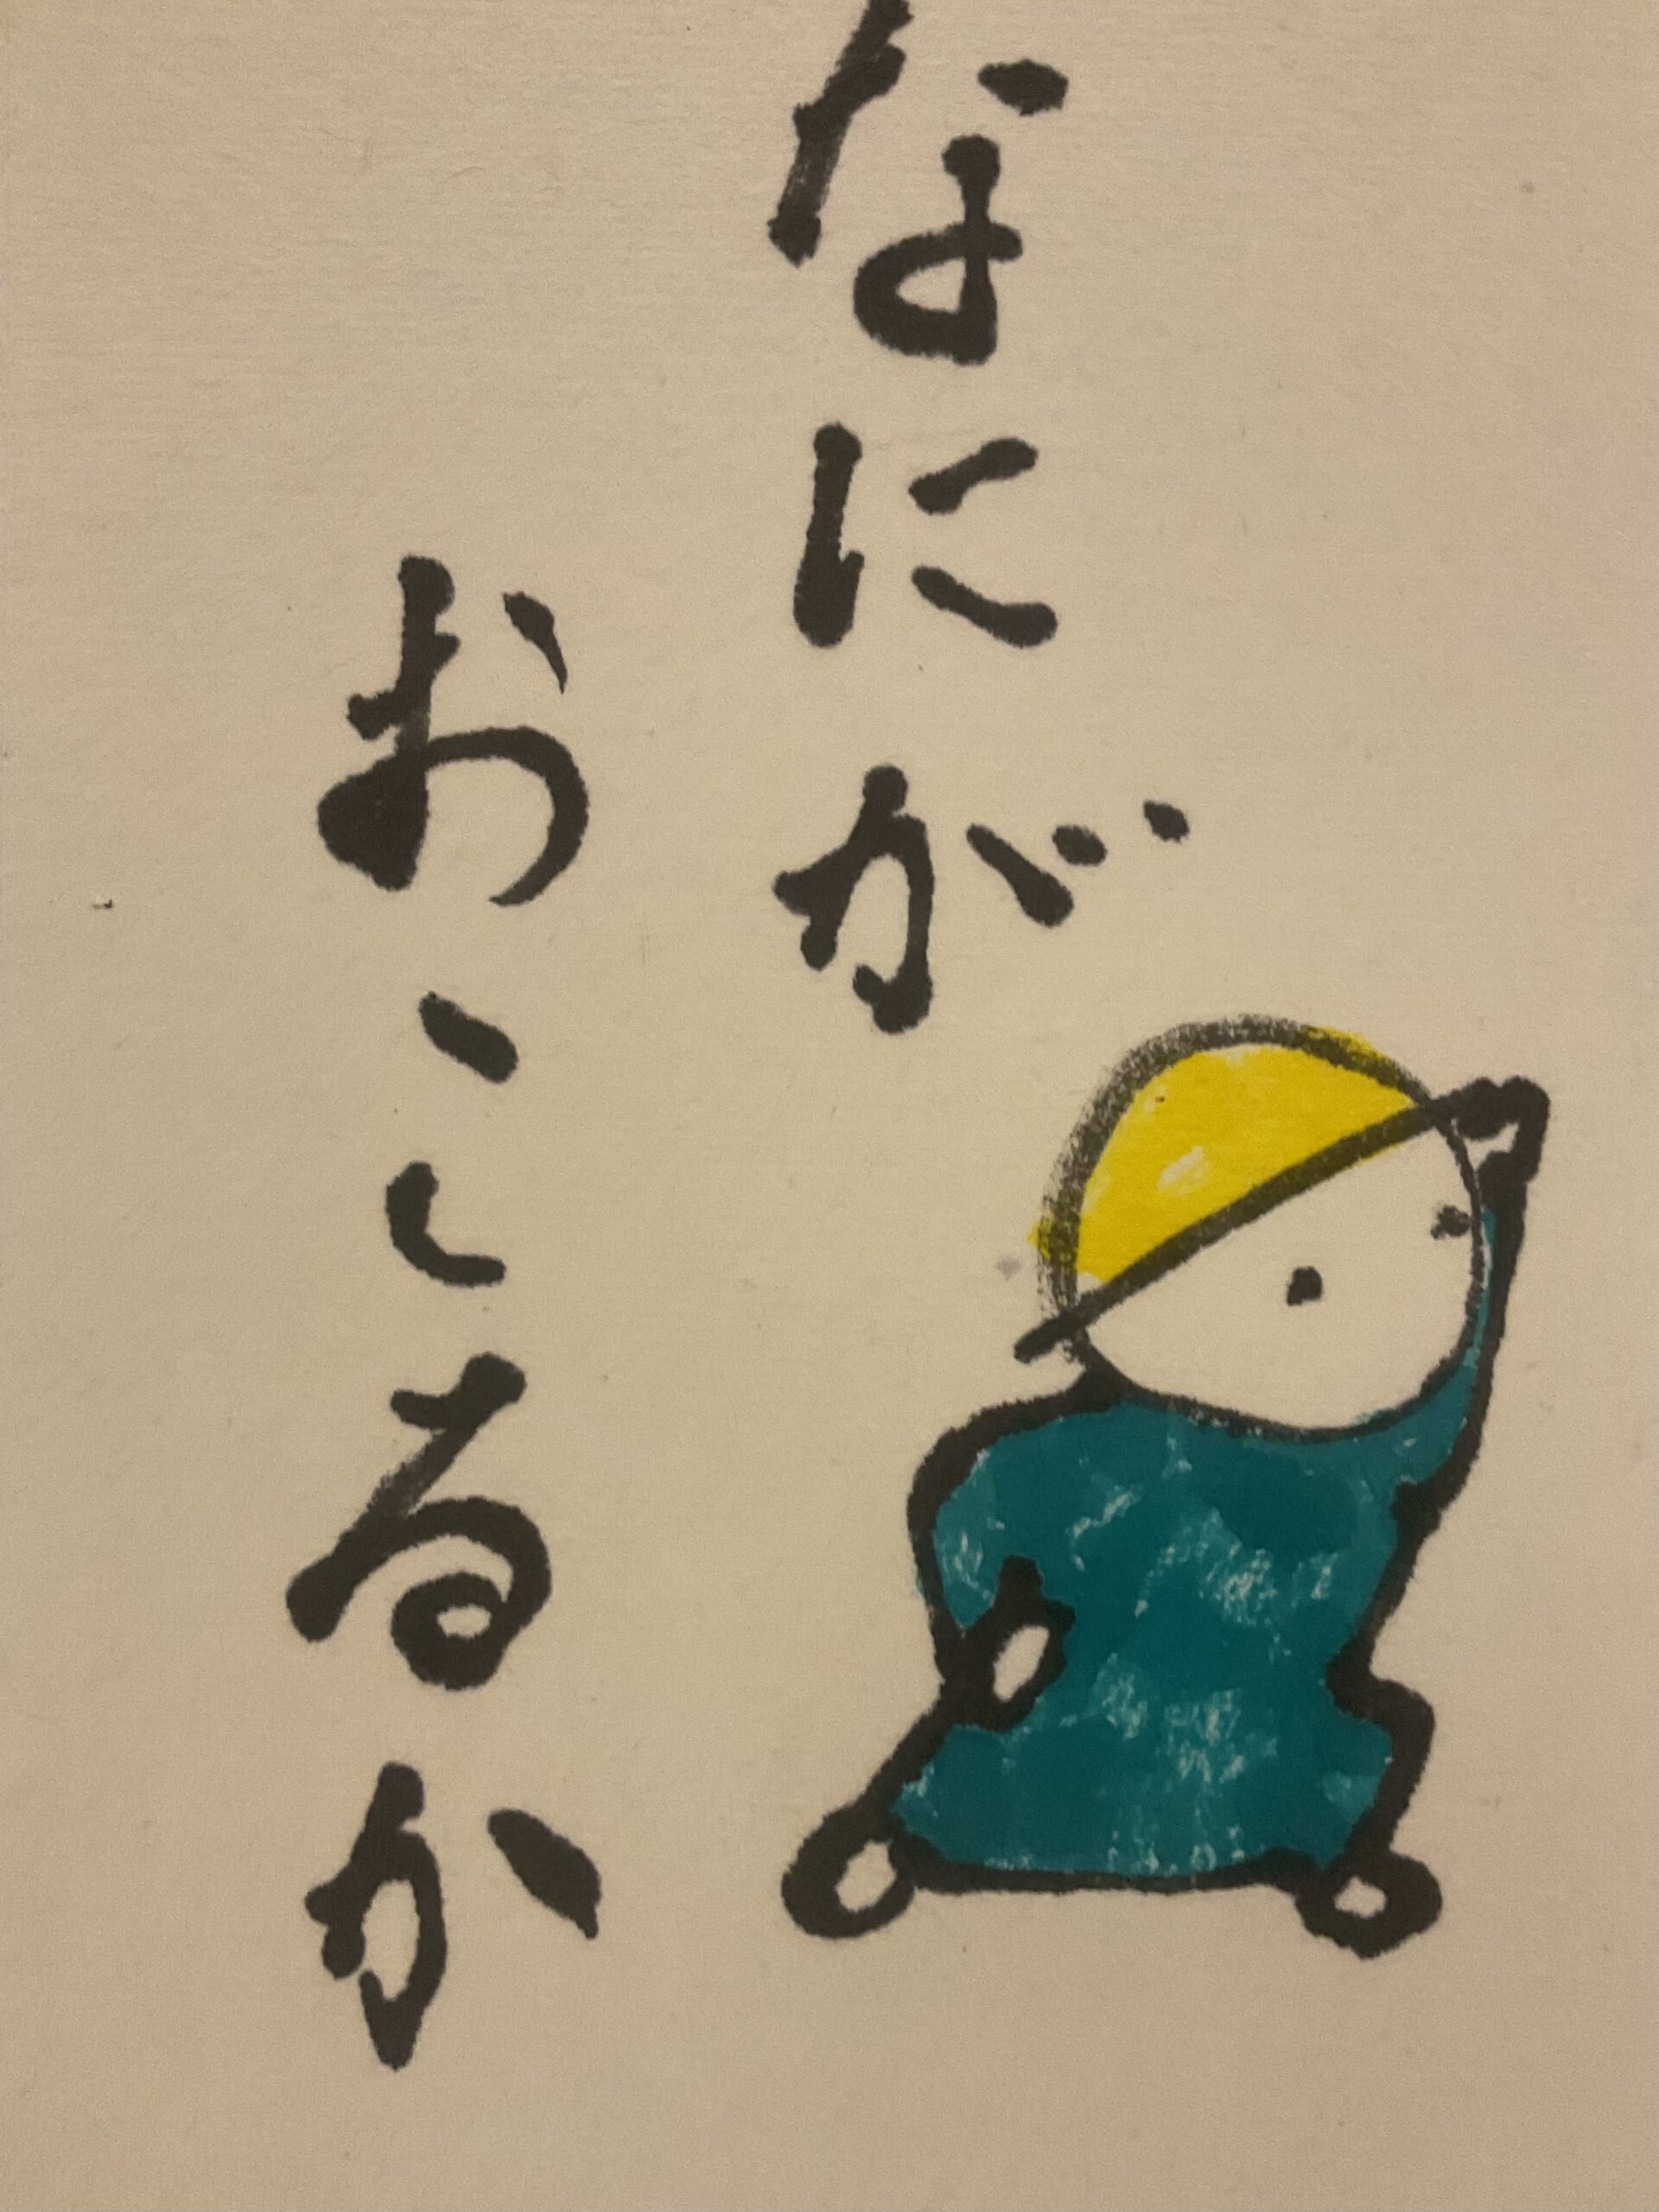 なにが
おこるか